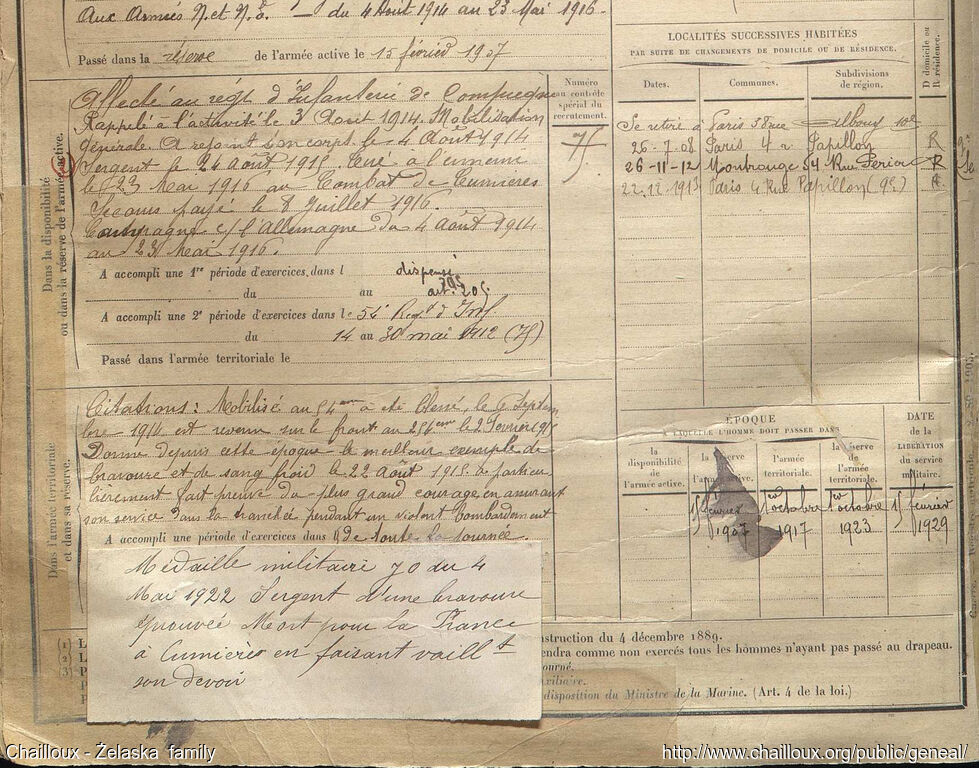 Aux Armées N. et N.E. — du 4 Août 1914 au 23 Mai 1916.
Passé dans la réserve de l'armée active le 15 février 1907
Dans la disponibilité
ou dans la réserve de l'armée active.
Affecté au régt d'Infanterie de Compiègne
Rappelé à l'activité le 3 Août 1914. Mobilisation
générale. A rejoint son corps le 4 Août 1914
Sergent le 24 août 1915. Tué à l'ennemi
le 23 Mai 1916 au Combat de Cumières
Secours payé le 8 Juillet 1916.
Campagne c/ l'allemagne du 4 Août 1914
au 23 Mai 1916.
A accompli une 1re période d'exercices, dans l dispensé
du au art. 20
A accompli une 2e période d'exercices dans le 54 Regt d'Inf.
du 14 au 30 mai 1912
Passé dans l'armée territoriale le
Numéro
au contrôle
spécial du
recrutement.
LOCALITÉS SUCCESSIVES HABITÉES
PAR SUITE DE CHANGEMENTS DE DOMICILE OU DE RÉSIDENCE.
D domicile ou
R résidence.
Dates. Communes. Subdivisions
de région.
Se retire à Paris 58 rue 10e
26-7-08 Paris 4 r Papillon R
26-11-12 Montrouge 54 Rue R
22.12.1913 Paris 4 Rue Papillon (9e)
Dans l'armée territoriale
et dans sa réserve.
Citations : Mobilisé au 54eme a été blessé, le 6 Septem
bre 1914 est revenu sur le front au 254eme le 2 Février 1915
Donne depuis cette époque le meilleur exemple de
bravoure et de sang froid le 22 août 1915 a particu
lièrement fait preuve du plus grand courage en assurant
son service dans la tranchée pendant un violent bombardement
A accompli une période d'exercices dans l de toute la journée.
ÉPOQUE
A LAQUELLE L'HOMME DOIT PASSER DANS
DATE
de la
LIBÉRATION
du service
militaire.
la
disponibilité
de l'armée active.
la réserve
de
l'armée active.
l'armée
territoriale.
la réserve
de
l'armée
territoriale.
15 février 1er octobre 1er octobre 15 février
1907 1917 1923 1929
Médaille militaire JO du 4
Mai 1922 Sergent d'une bravoure
éprouvée Mort pour la France
à Cumières en faisant vaillt
son devoir
(1) L
(2) L
(3) P
nstruction du 4 décembre 1889.
endra comme non exercés tous les hommes n'ayant pas passé au drapeau.
ourné.
xiliaire.
disposition du Ministre de la Marine. (Art. 4 de la loi.)
Chailloux - Żelaska family
http://www.chailloux.org/public/geneal/